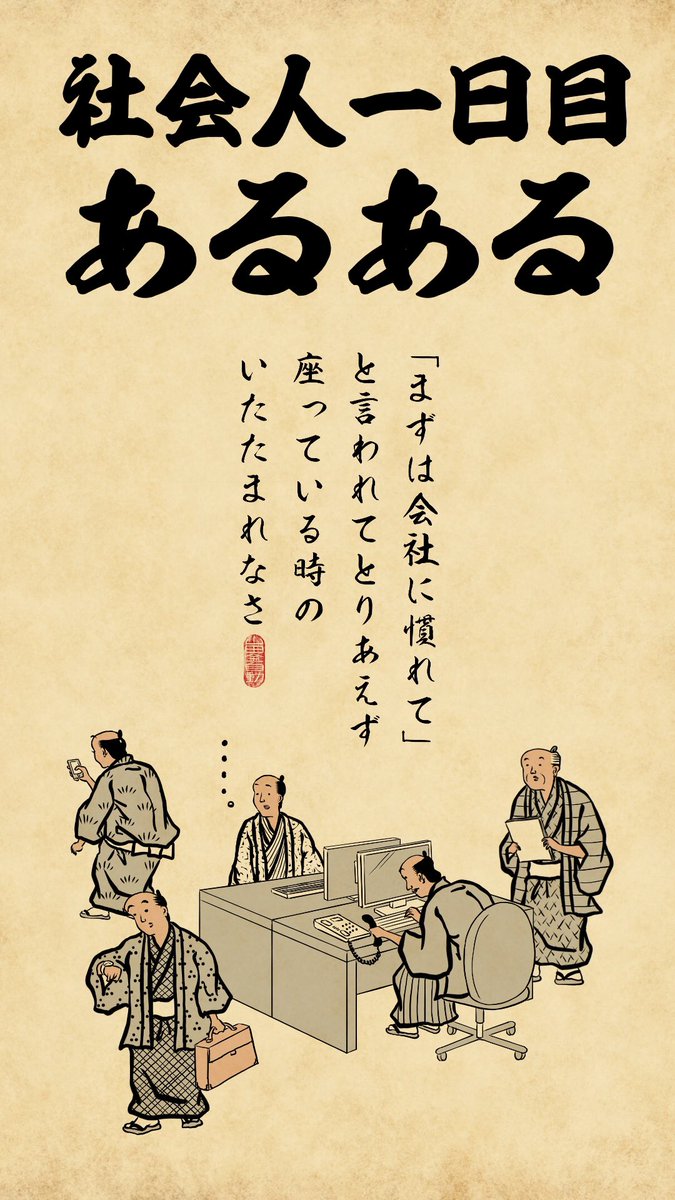 社会人一日目
あるある
「まずは会社に慣れて」
と言われてとりあえず
座っている時の
いたたまれなさ